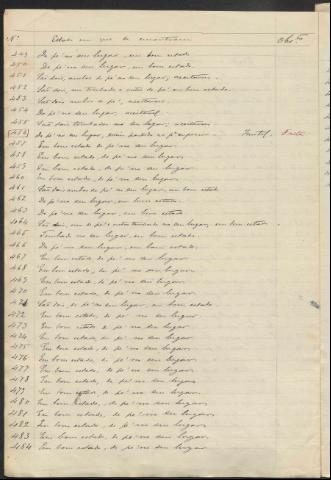 Nº Estado em que se encontram Obs.
449 De pé no seu lugar, em bom estado
450 De pé no seu lugar, em bom estado.
451 São dois, ambos de pé no seu lugar,
452 São dois, um tombado e outro de pé em bom estado.
453 São dois ambos de pé,
454 De pé no seu lugar,
455 São dois tombados no seu lugar,
456 De pé no seu lugar, Inutil.
457 Em bom estado, de pé no seu lugar
458 Em bom estado, de pé no seu lugar.
459 Em bom estado, de pé no seu lugar
460 Em bom estado, de pé no seu lugar
461 São dois ambos de pé no seu lugar, em bom estado
462 De pé no seu lugar, em bom estado.
463 De pé no seu lugar, em bom estado
464 São dois, um de pé e outro tombado no seu lugar, em bom estado.
465 Tombado no seu lugar, em bom estado.
466 De pé no seu lugar, em bom estado.
467 Em bom estado de pé no seu lugar
468 Em bom estado, de pé no seu lugar.
469 Em bom estado, de pé no seu lugar
470 Em bom estado, de pé no seu lugar.
471 São dois, de pé no seu lugar, em bom estado.
472 Em bom estado, de pé no seu lugar.
473 Em bom estado de pé no seu lugar
474 Em bom estado, de pé no seu lugar.
475 Em bom estado, de pé no seu lugar
476 Em bom estado, de pé no seu lugar.
477 Em bom estado, de pé no seu lugar
478 Em bom estado, de pé no seu lugar.
479 Em bom estado, de pé no seu lugar.
480 Em bom estado, de pé no seu lugar
481 Em bom estado, de pé no seu lugar
482 Em bom estado, de pé no seu lugar
483 Em bom estado, de pé no seu lugar
484 Em bom estado, de pé no seu lugar